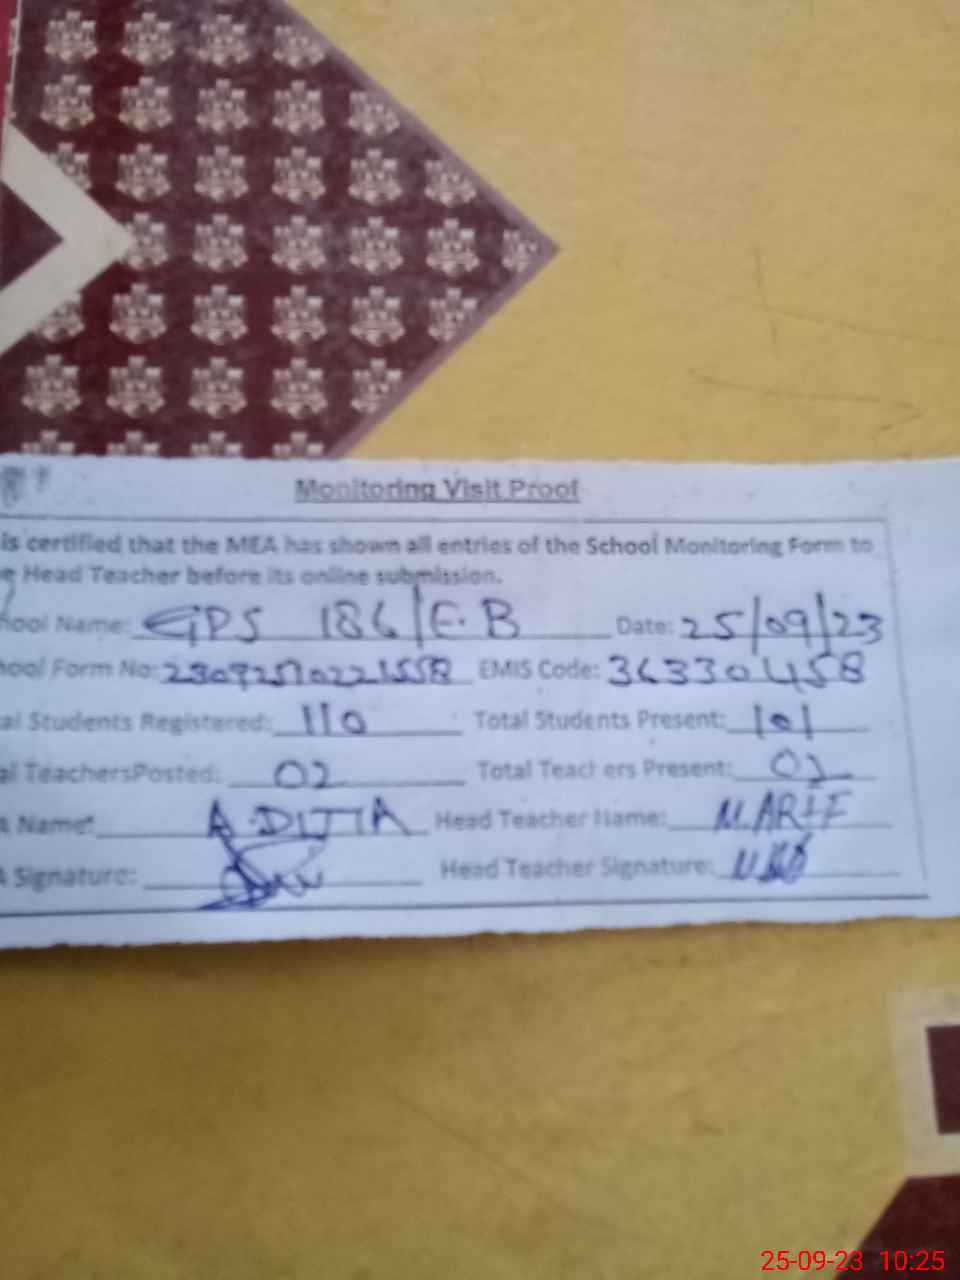 Monitoring Visit Proof
is certified that the MEA has shown all entries of the School Monitoring Form to
e Head Teacher before its online submission.
hool Name: GPS 186/E.B Date: 25/09/23
hool Form No: EMIS Code: 36330458
al Students Registered: 110 Total Students Present: 101
al TeachersPosted: 02 Total Teachers Present: 02
A Name: Head Teacher Name: M.ARIF
A Signature: Head Teacher Signature:
25-09-23 10:25